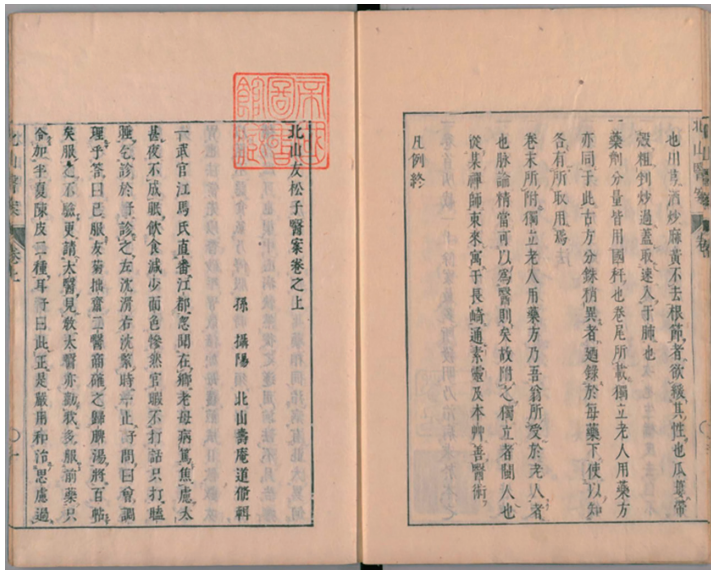 也川芎酒炒麻黃不去根節者欲緩其性也瓜蔞帶
殼粗判炒過蓋取速入于肺也
藥劑分量皆用國秤也卷尾所載獨立老人用藥方
亦同于此古方分銖稍異者廼錄於每藥下使以知
各有所取用焉
卷末所附獨立老人用藥方乃吾翁所受於老人者
也脉論精當可以爲醫則矣故附之獨立者閩人也
從某禪師東來寓于長崎通素靈及本艸善醫術
凡例終
北山友松子醫案卷之上
孫 攝陽 北山壽庵道脩輯
一武官江馬氏直番江都忽聞在鄉老母病篤焦慮太
甚夜不成眠飲食減少面色慘然官暇不打話只打瞌
睡乞診於予診之左沈滑右沈緊時一止予問曰曾調
理乎答曰已服友菊拙齋二醫商確之歸脾湯將百帖
矣服之不驗更請太醫見教太醫亦勸我多服前藥只
令加半夏陳皮二種耳予曰此正是嚴用和治思慮過
北山醫案
卷上